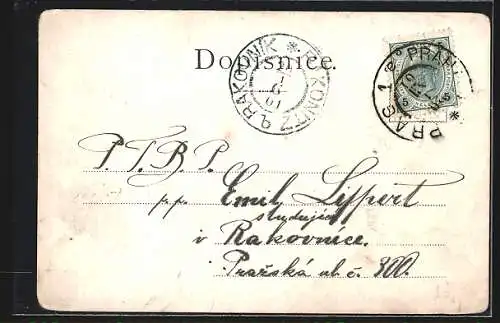 Dopisnice.
RAKOVNÍK * RAKONITZ
PRAG 1 * PRAHA
P. T. B. P.
p.p. Emil Lyppert
studující
v Rakovníce.
Pražská ul. č. 300.